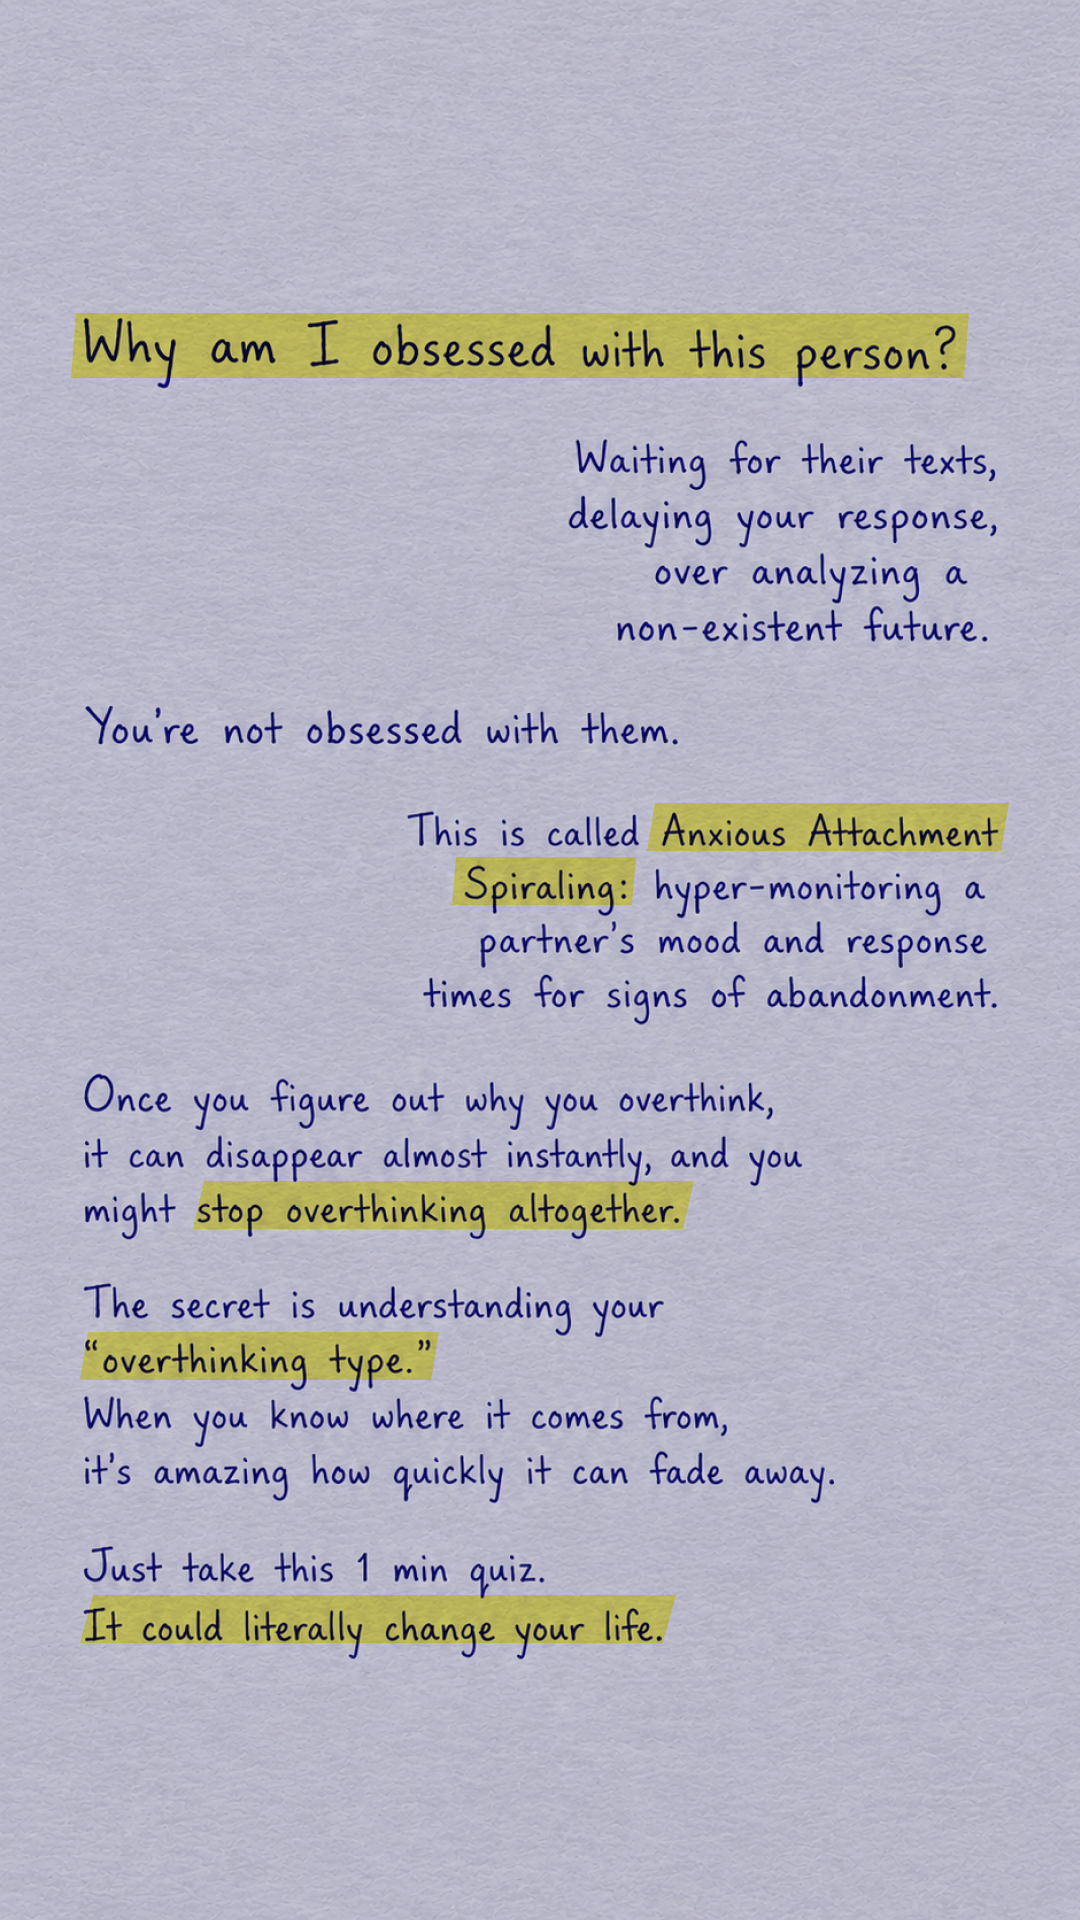 Why am I obsessed with this person?
Waiting for their texts,
delaying your response,
over analyzing a
non-existent future.
You're not obsessed with them.
This is called Anxious Attachment
Spiraling: hyper-monitoring a
partner's mood and response
times for signs of abandonment.
Once you figure out why you overthink,
it can disappear almost instantly, and you
might stop overthinking altogether.
The secret is understanding your
“overthinking type.”
When you know where it comes from,
it's amazing how quickly it can fade away.
Just take this 1 min quiz.
It could literally change your life.